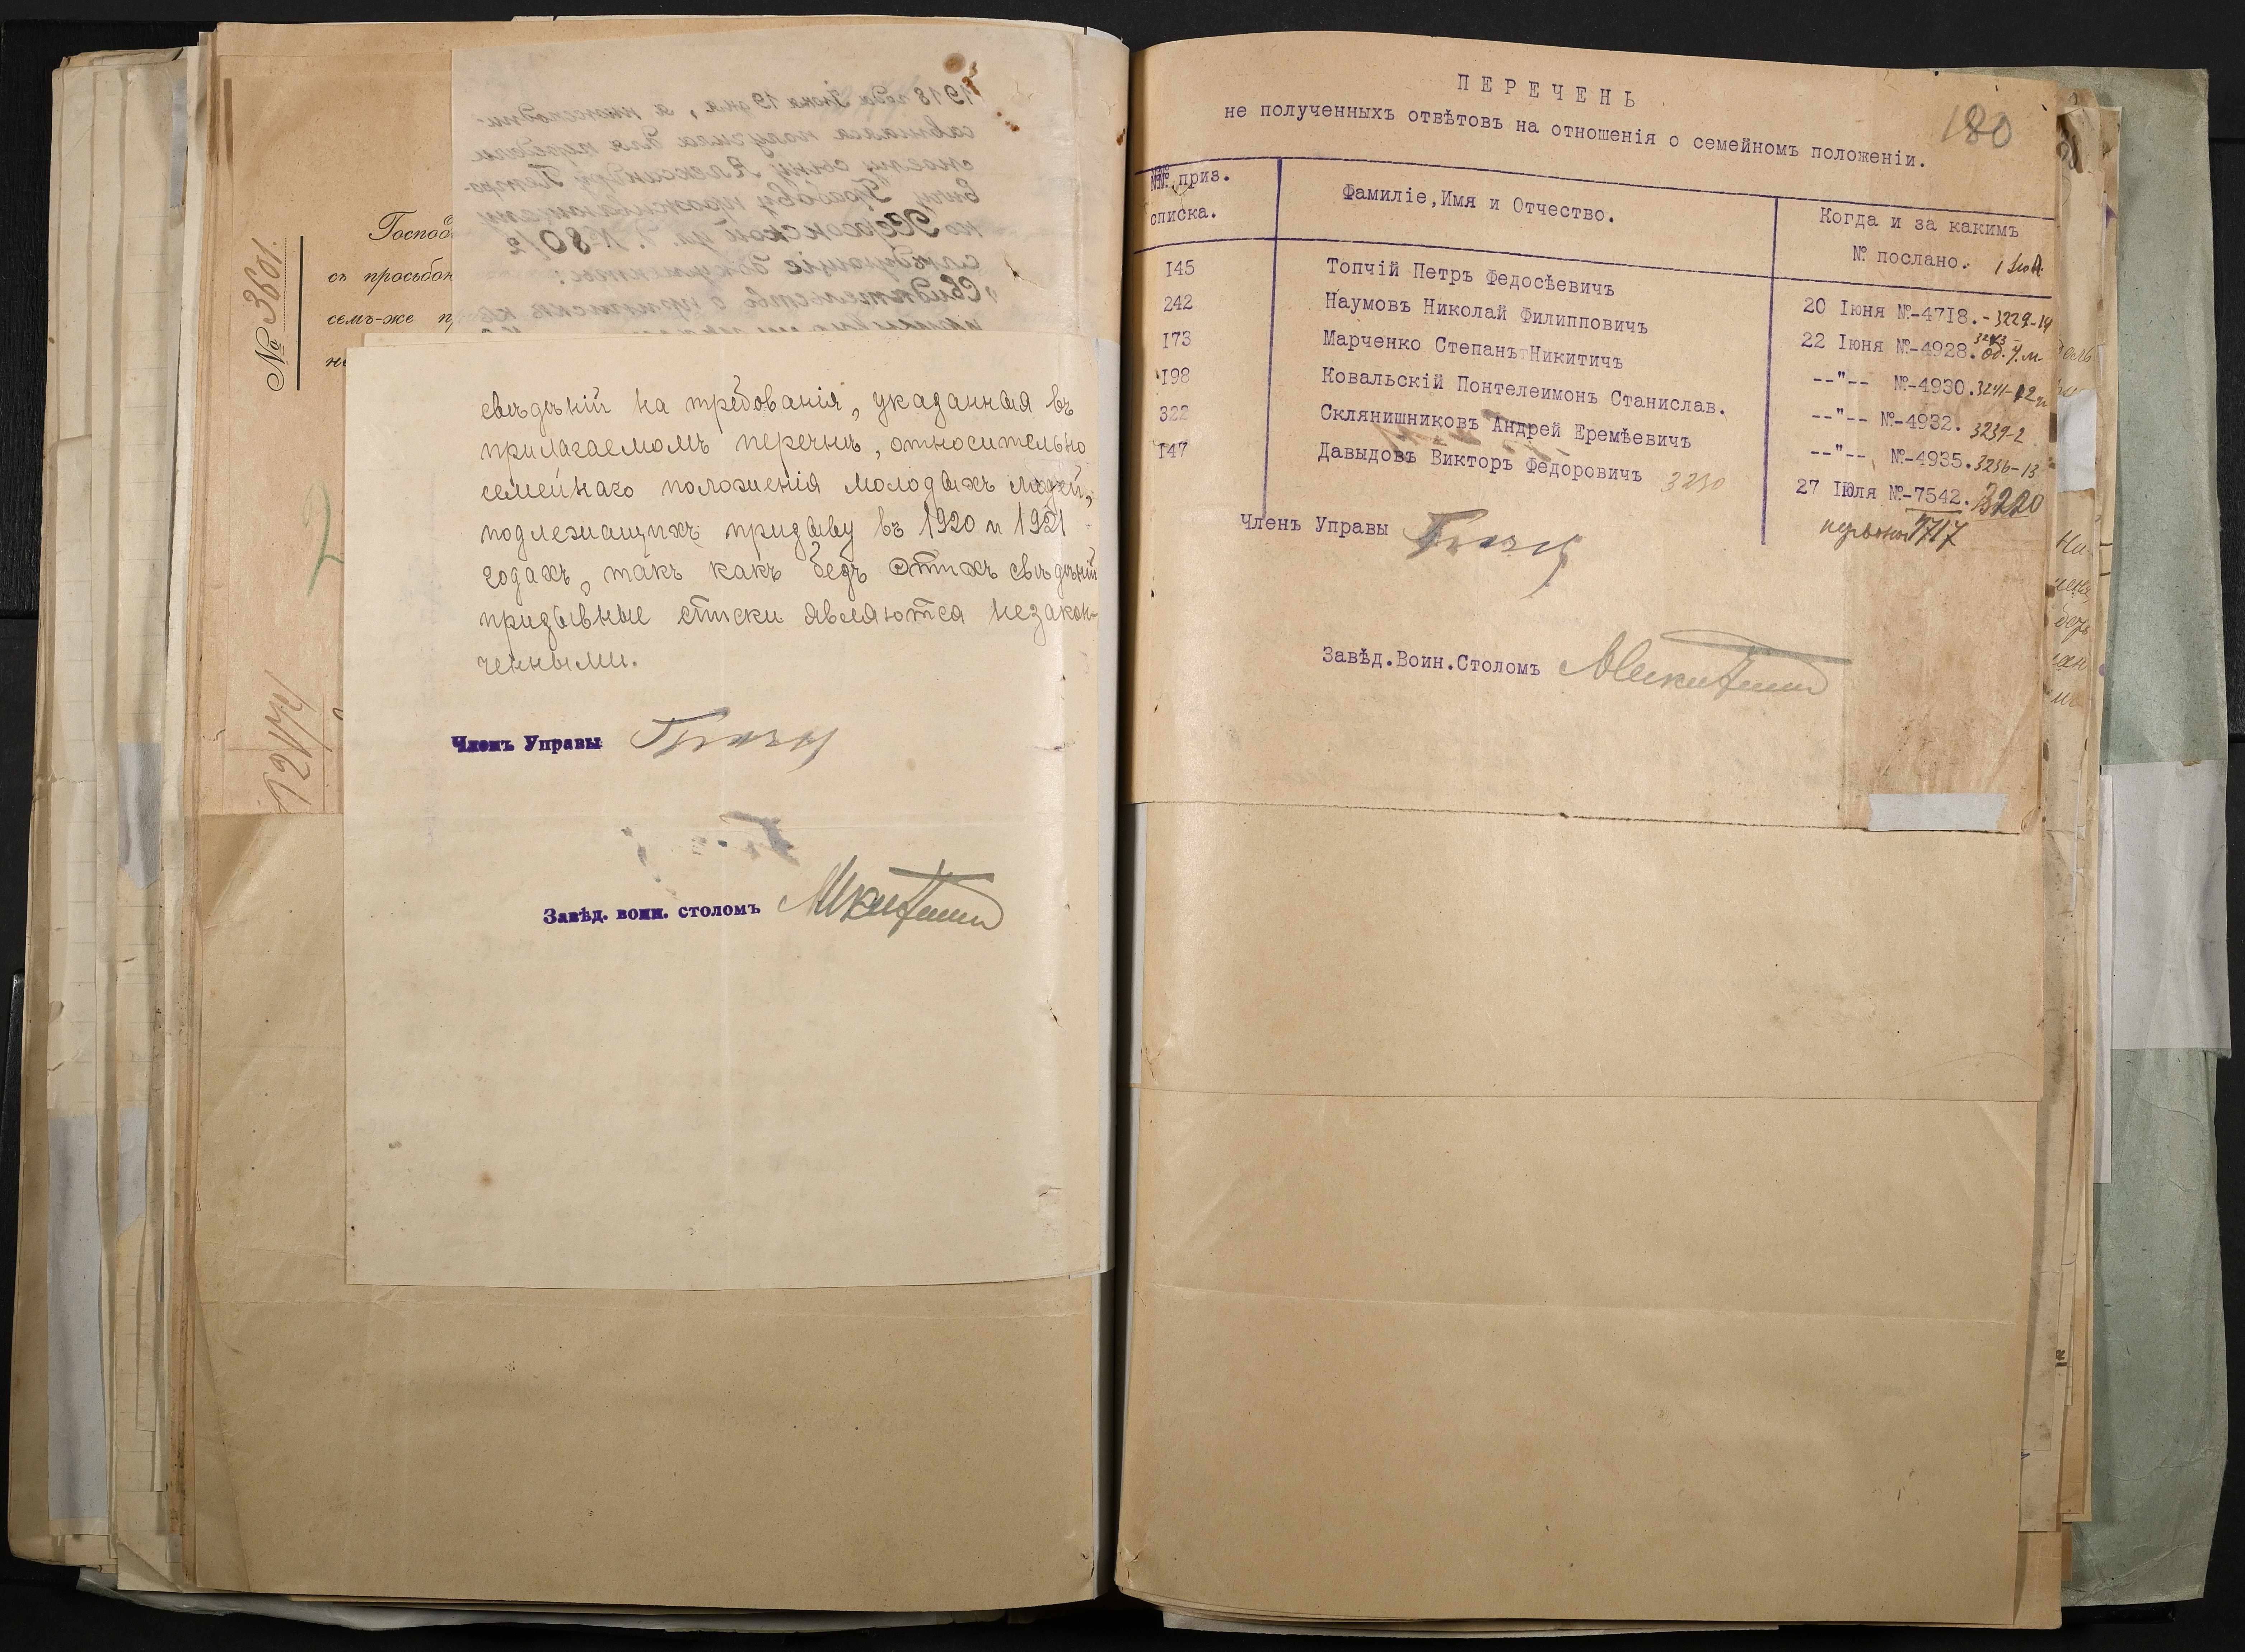 № 3601.
Господ
съ просьбою
семъ-же п
12174
1918 года Июня 19 дня, я нижеподпи-
савшаяся получила для передачи
моему сыну Александру Петро-
вичу проживающему
по Херсонской ул. д. № 80/2
слѣдующіе документы:
Свидѣтельство о припискѣ къ
свѣдѣній на требованія, указанныя въ
прилагаемомъ перечнѣ, относительно
семейнаго положенія молодыхъ людей,
подлежащихъ призыву въ 1920 и 1921
годахъ, такъ какъ безъ этихъ свѣдѣній
призывные списки являются незакон-
ченными.
Членъ Управы
Завѣд. воин. столомъ
180
ПЕРЕЧЕНЬ
не полученныхъ отвѣтовъ на отношенія о семейномъ положеніи.
№№ приз.
списка.
Фамиліе,Имя и Отчество.
Когда и за какимъ
№ послано.
145 Топчій Петръ Федосѣевичъ 20 Іюня №-4718.-3229-14
242 Наумовъ Николай Филипповичъ 22 Іюня №-4928.
173 Марченко Степанъ Никитичъ --"-- №-4930.
198 Ковальскій Понтелеимонъ Станислав. --"-- №-4932. 3239-2
322 Склянишниковъ Андрей Еремѣевичъ --"-- №-4935. 3236-13
147 Давыдовъ Викторъ Федоровичъ 3230 27 Іюля №-7542. 3220
4717
Членъ Управы
Завѣд.Воин.Столомъ